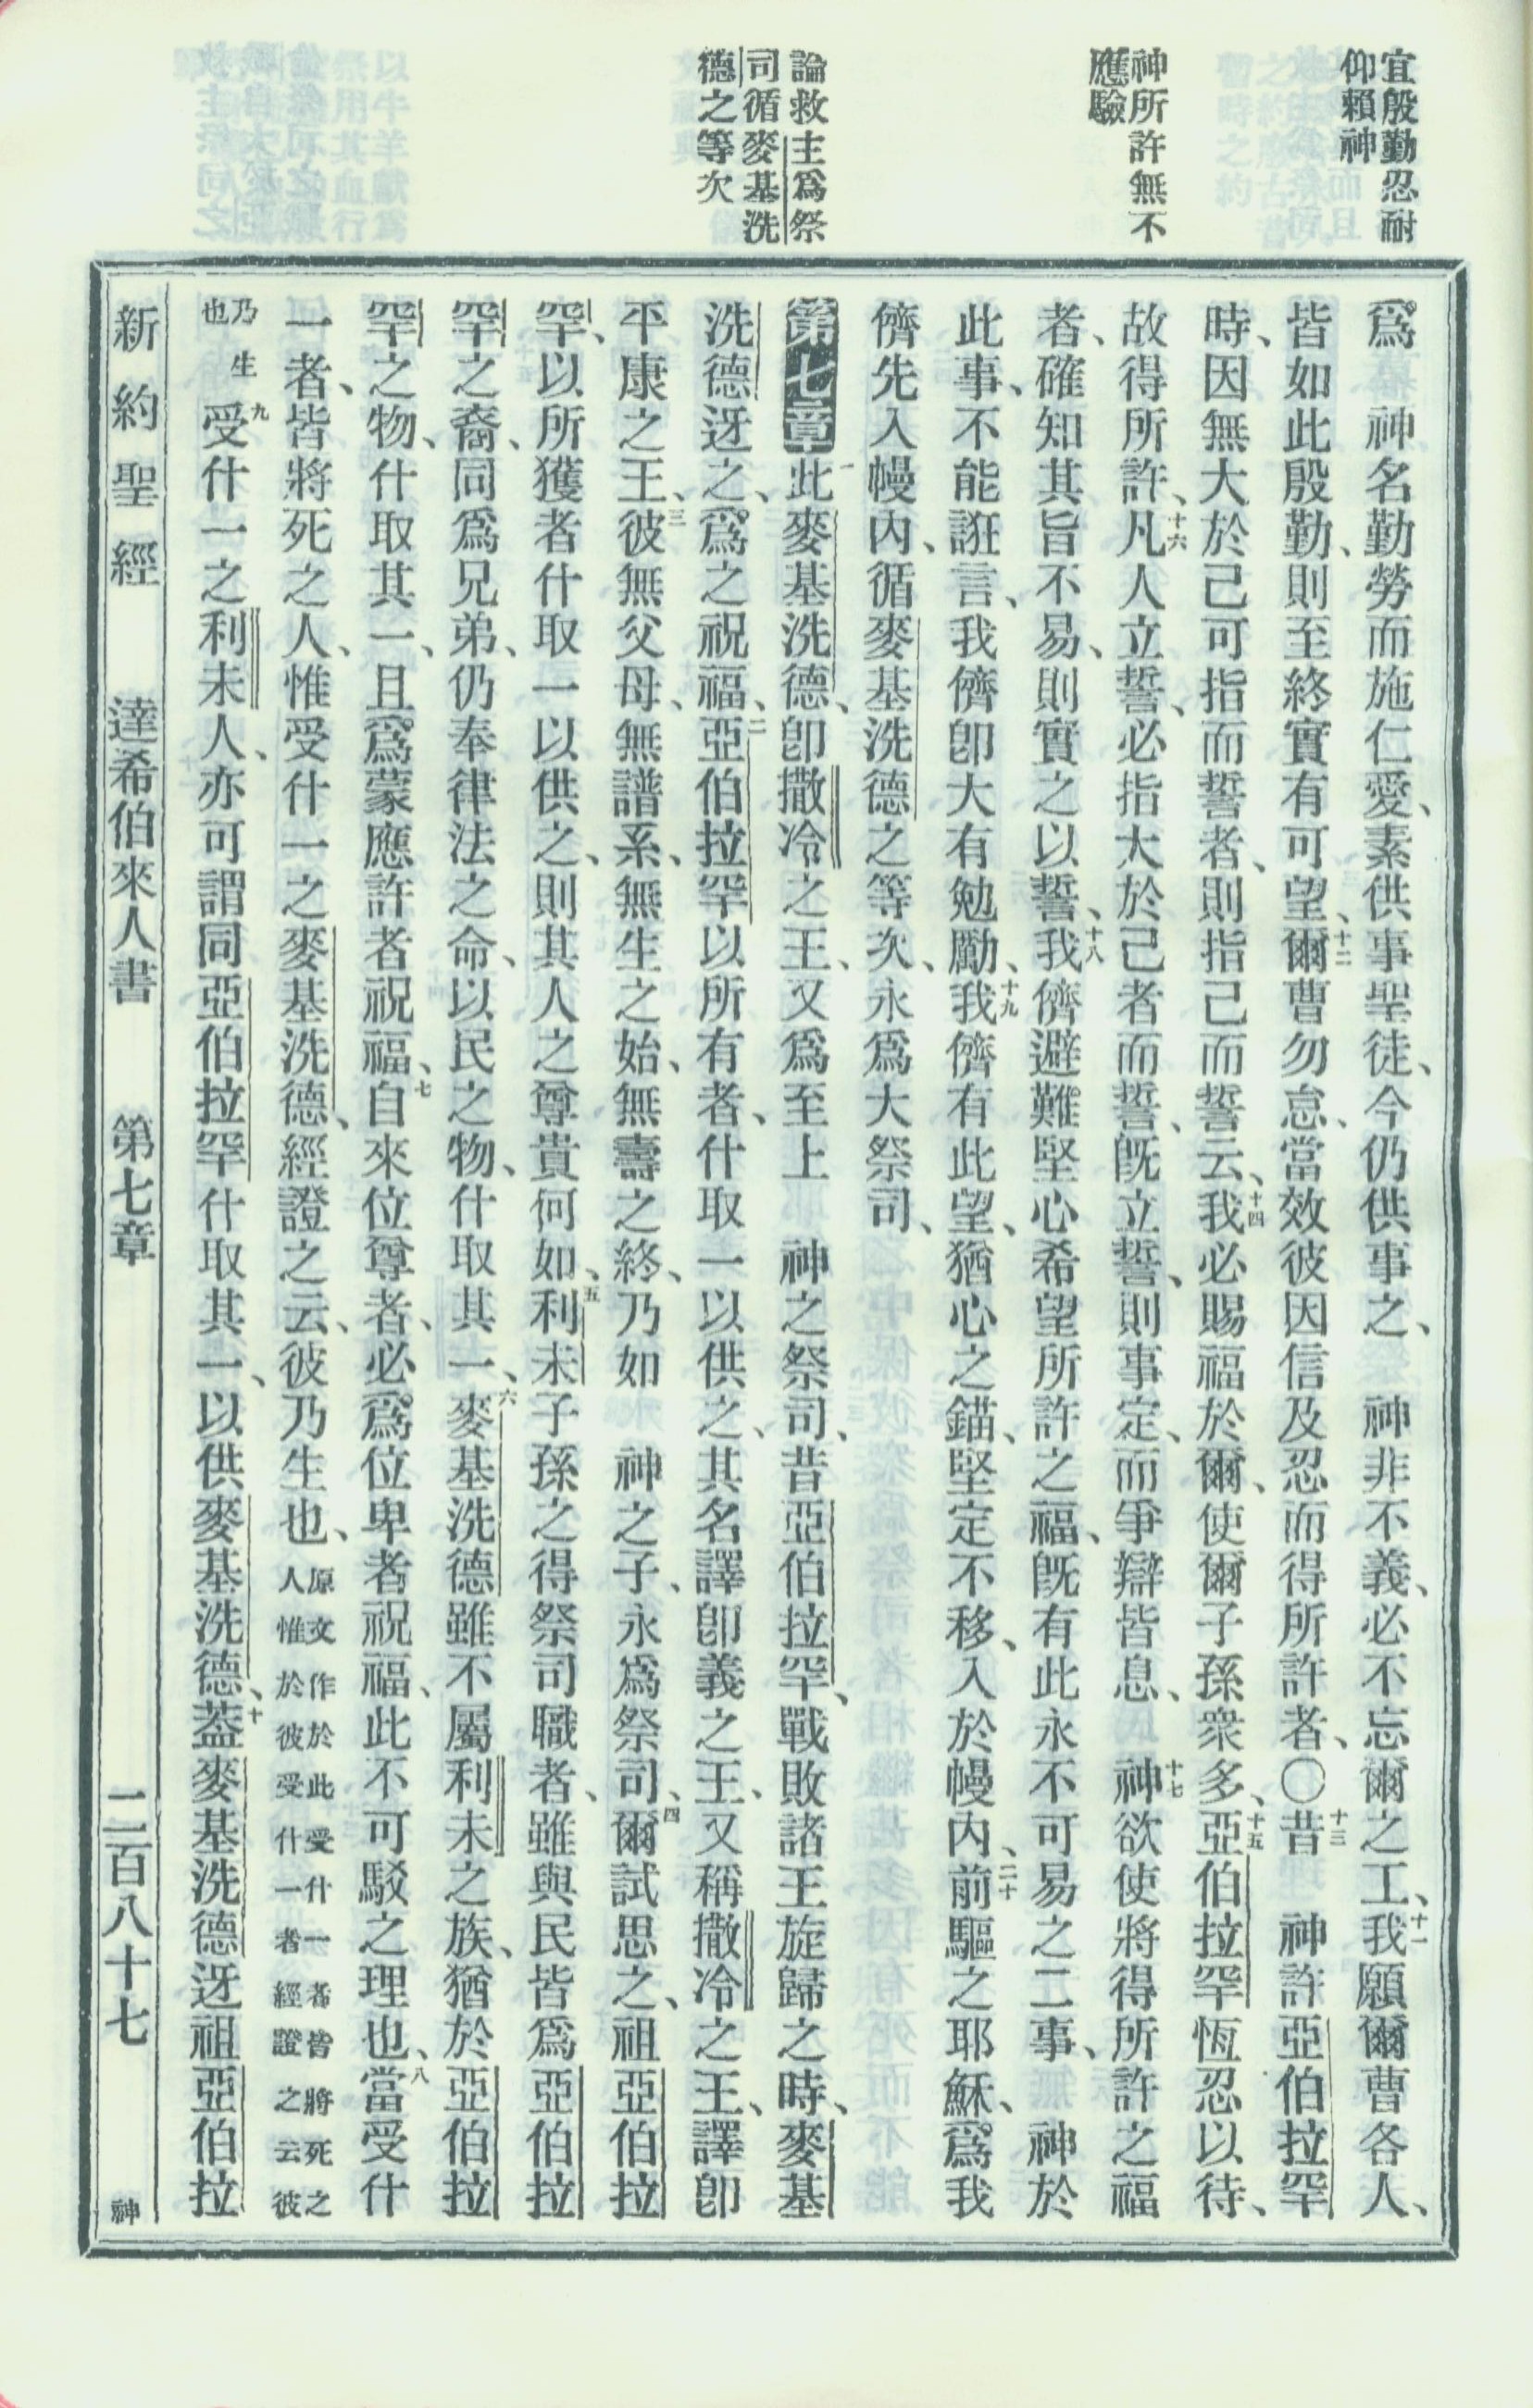 宜殷勤忍耐
仰賴神
神所許無不
應驗
論救主爲祭
司循麥基洗
德之等次
爲　神名勤勞而施仁愛、素供事聖徒、今仍供事之、　神非不義、必不忘爾之工、十一我願爾曹各人、
皆如此殷勤、則至終實有可望、十二爾曹勿怠、當效彼因信及忍而得所許者、〇十三昔　神許亞伯拉罕
時、因無大於己可指而誓者、則指己而誓云、十四我必賜福於爾、使爾子孫衆多、十五亞伯拉罕恆忍以待、
故得所許、十六凡人立誓、必指大於己者而誓、旣立誓、則事定、而爭辯皆息、十七　神欲使將得所許之福
者、確知其旨不易、則實之以誓、十八我儕避難、堅心希望所許之福、旣有此永不可易之二事、　神於
此事、不能誑言、我儕卽大有勉勵、十九我儕有此望、猶心之錨、堅定不移、入於幔內、二十前驅之耶穌、爲我
儕先入幔內、循麥基洗德之等次、永爲大祭司、
第七章一此麥基洗德、卽撒冷之王、又爲至上　神之祭司、昔亞伯拉罕、戰敗諸王旋歸之時、麥基
洗德迓之、爲之祝福、二亞伯拉罕以所有者、什取一以供之、其名譯卽義之王、又稱撒冷之王、譯卽
平康之王、三彼無父母、無譜系、無生之始、無壽之終、乃如　神之子、永爲祭司、四爾試思之、祖亞伯拉
罕、以所獲者什取一以供之、則其人之尊貴何如、五利未子孫之得祭司職者、雖與民皆爲亞伯拉
罕之裔、同爲兄弟、仍奉律法之命、以民之物、什取其一、六麥基洗德雖不屬利未之族、猶於亞伯拉
罕之物、什取其一、且爲蒙應許者祝福、七自來位尊者、必爲位卑者祝福、此不可駁之理也、八當受什
一者、皆將死之人、惟受什一之麥基洗德、經證之云、彼乃生也、原文作於此受什一者皆將死之人惟於彼受什一者經證之云彼
乃生也九受什一之利未人、亦可謂同亞伯拉罕什取其一、以供麥基洗德、十蓋麥基洗德迓祖亞伯拉
新約聖經　達希伯來人書　第七章　二百八十七　神